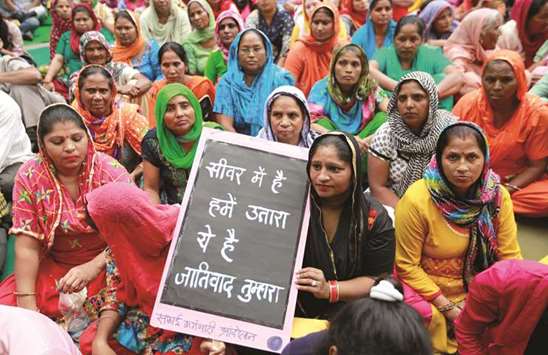 सीवर में है
हमें उतारा
ये है
जातिवाद तुम्हारा
सफाई कर्मचारी आंदोलन